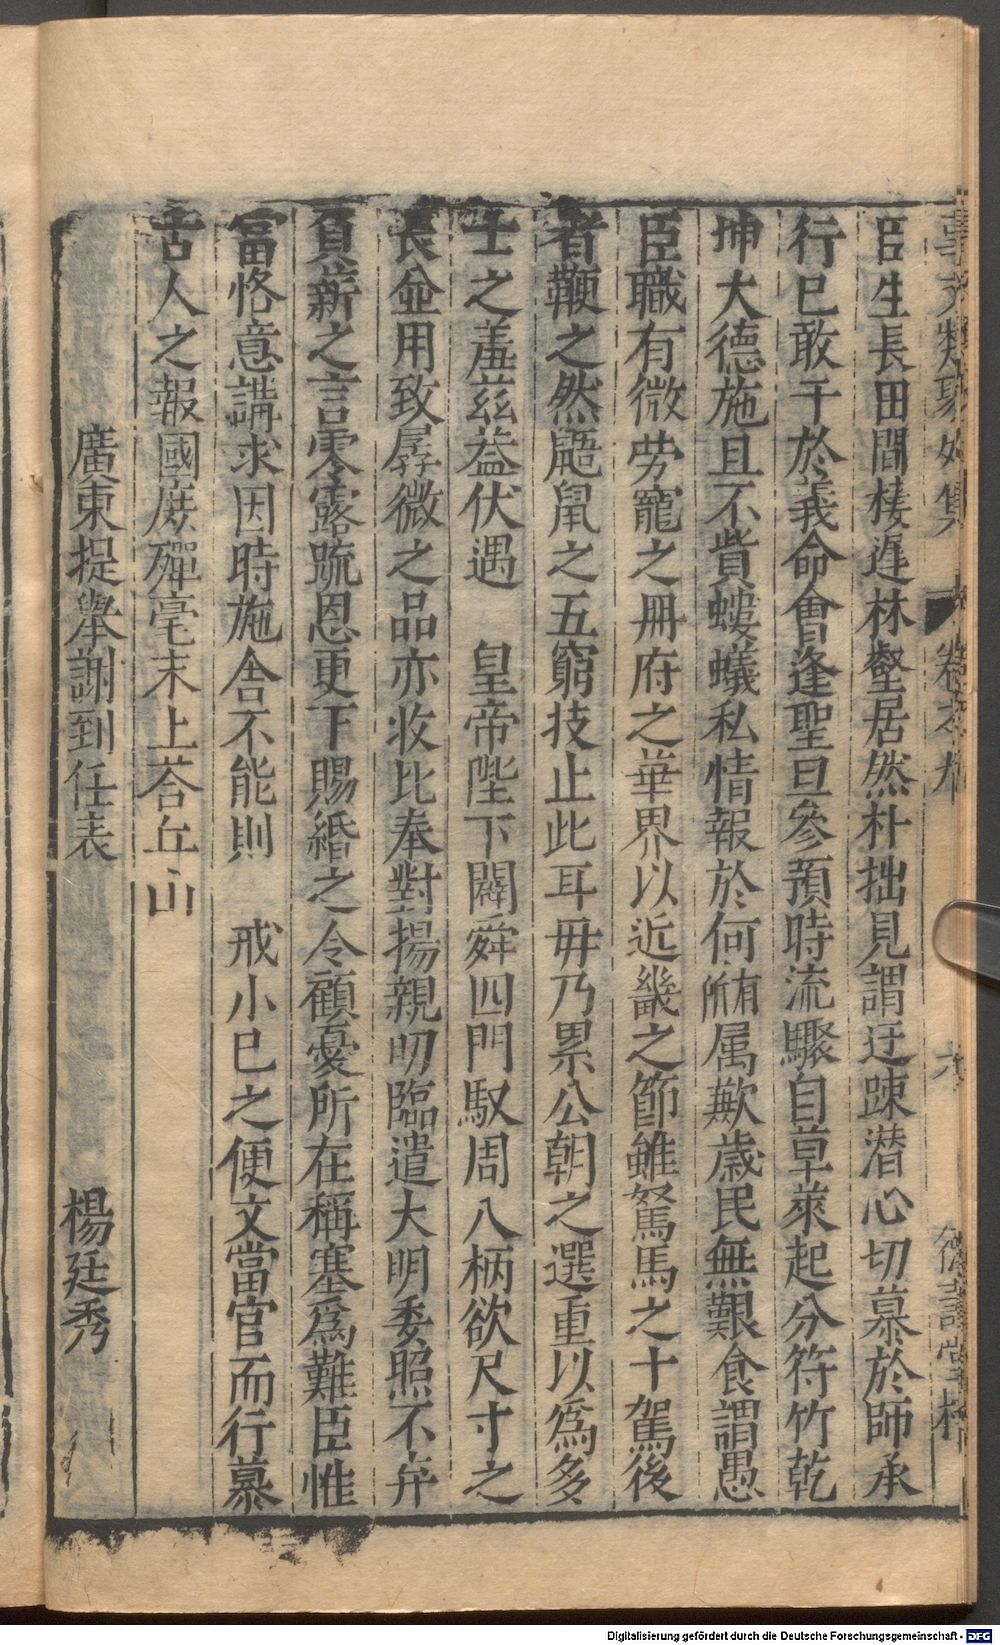 臣生長田間棲遲林壑居然朴拙見謂迂踈潛心切慕於師承
行已敢干於義命會逢聖旦參預時流驟自草萊起分符竹乾
坤大德施且不貲螻蟻私情報於何所有属歉歲民無艱食謂愚
臣職有微勞寵之冊府之華界以近畿之節雖駑馬之十駕後
者鞭之然鼯鼠之五窮技止此耳毋乃累公朝之選重以爲多
士之羞兹益伏遇　皇帝陛下闢舜四門馭周八柄欲尺寸之
長僉用致孱微之品亦收比奉對揚親叨臨遣大明委照不弃
負薪之言零露疏恩更下賜緡之令顧憂所在稱塞爲難臣惟
當恪意講求因時施舍不能則　戒小已之便文當官而行慕
古人之報國庻殫亳末上荅丘山
廣東提舉謝到任表　楊廷秀
德壽堂梓
Digitalisierung gefördert durch die Deutsche Forschungsgemeinschaft - DFG